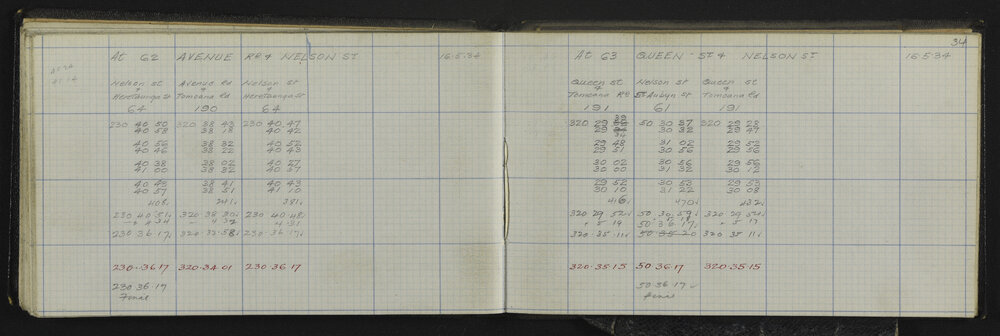 At 62 AVENUE Rd & NELSON ST 16.5.34
Nelson st Avenue Rd Nelson st
& & &
Heretaunga St Tomoana Rd Heretaunga St
64 190 64
230 40 50 320 38 43 230 40 47
40 58 38 18 40 42
40 56 38 32 40 52
40 46 38 22 40 43
40 38 38 02 40 27
41 00 38 32 40 37
40 43 38 41 40 43
40 57 38 51 41 10
408 241 381
230 40 51 320 38 30 230 40 48
4 34 4 32 4 31
230 36 17 320 33 58 230 36 17
230.36 17 320.34 01 230.36 17
230 36 17
Final
34
At 63 QUEEN ST & NELSON ST 16.5.34
Queen st Nelson st Queen st
& & &
Tomoana Rd St Aubyn St Tomoana Rd
191 61 191
320 29 50 30 37 320 29 28
29 30 32 29 47
29 48 31 02 29 52
29 51 30 56 29 56
30 02 30 56 29 56
30 00 31 32 30 12
29 52 30 53 29 53
30 10 31 22 30 08
416 470 432
320 29 52 50 30 59 320 29 54
5 19 5 18 5 17
50 36 17
320.35 11 50 35 20 320 35 11
320.35.15 50.36 17 320.35.15
50 36 17
Final